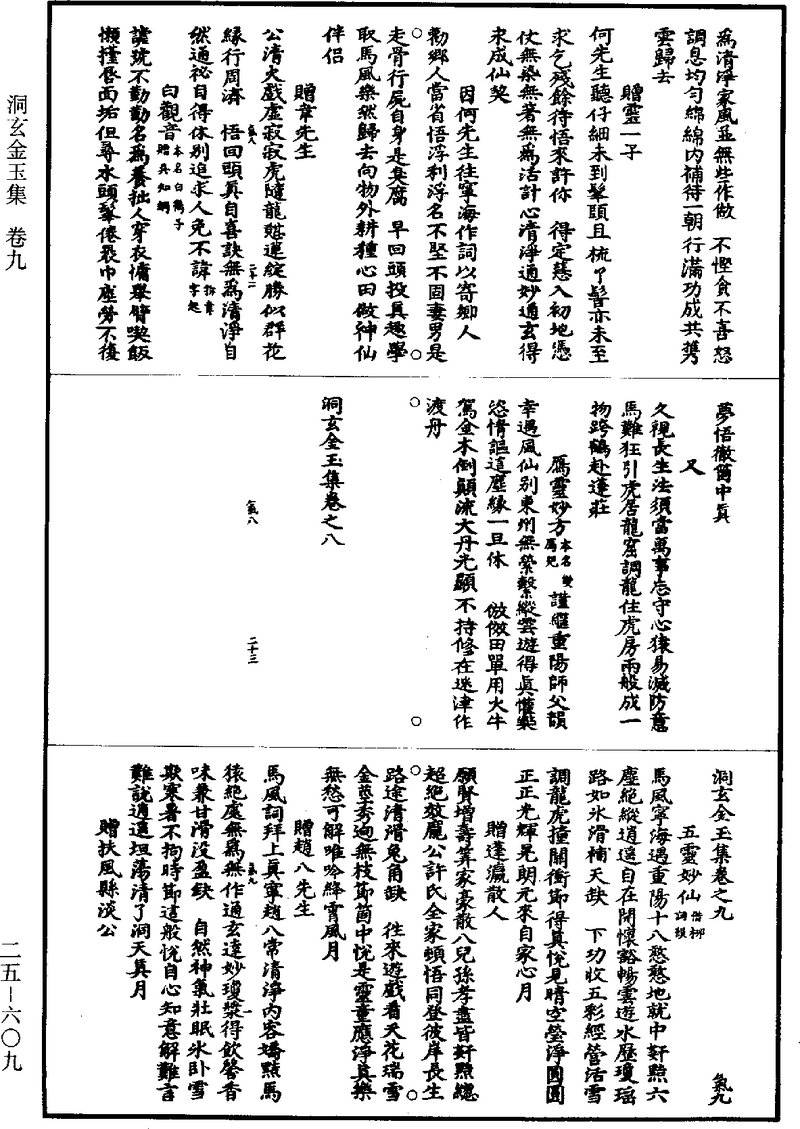 洞玄金玉集　卷九
爲清淨家風並無些作做　不慳貪不喜怒
調息均勻綿綿内補待一朝行滿功成共携
雲歸去
贈靈一子
何先生聽仔細未到髽頭且梳丫髻亦未至
求乞殘餘待悟來許你　得定慧入初地憑
仗無染無著無爲活計心清淨通妙通玄得
來成仙契
因何先生往寧海作詞以寄鄉人
勸鄉人當省悟浮利浮名不堅不固妻男是
走骨行屍自身是臭腐　早回頭投真趣學
取馬風樂然歸去向物外耕種心田做神仙
伴侣
贈韋先生
公清火戲虛寂寂虎隨龍蟠蓮綻勝似群花
緣行周濟　悟回頭眞自喜訣無爲清淨自
然通祕自得休别追求人免不諱拆韋字起
白觀音本名白鶴子贈吳知綱
讀號不勸勸名爲養拙人穿衣慵舉臂喫飯
懶擡唇面垢但尋水頭髽倦裹巾塵勞不復
氣八
二十二
夢悟徹箇中眞
又
久視長生法須當萬事忘守心猿易滅防意
馬難狂引虎居龍窟調龍住虎房兩般成一
物跨鶴赴蓬莊
鴈靈妙方本名雙鴈兒　謹繼重陽師父韻
幸遇風仙别東州無縈繫縱雲遊得眞懽樂
恣情謳這塵緣一旦休　倣倣田單用火牛
駕金木倒顛流大丹光顯不持修在迷津作
渡舟
洞玄金玉集卷之八
氣八
二十三
洞玄金玉集卷之九
氣九
五靈妙仙借柳詞韻
馬風寧海遇重陽十八憨憨地就中奸黠六
塵絶縱逍遥自在開懷豁暢雲遊水歷瓊瑶
路如氷滑補天缺　下功收五彩經營活雪
調龍虎撞關衝節得眞悦見晴空瑩淨圓圓
正正光輝晃朗元來自家心月
贈蓬瀛散人
願賢增壽筭家豪散八兒孫孝盡皆奸黠緫
超絶效龐公許氏全家頓悟同登彼岸長生
路途清滑兔角缺　往來遊戲看天花瑞雪
金莖秀迥無枝節箇中悦是靈童應淨眞樂
無愁可解唯吟絳霄風月
贈趙八先生
馬風詞拜上眞寧趙八常清淨内容嬌黠馬
猿絶處無爲無作通玄達妙瓊漿得飲馨香
味兼甘滑没盈缺　自然神氣壯眠氷卧雪
欺寒暑不拘時節這般悦自心知意解難言
難說逍遥坦蕩清了洞天眞月
贈扶風縣淡公
氣九
一
二五－六〇九